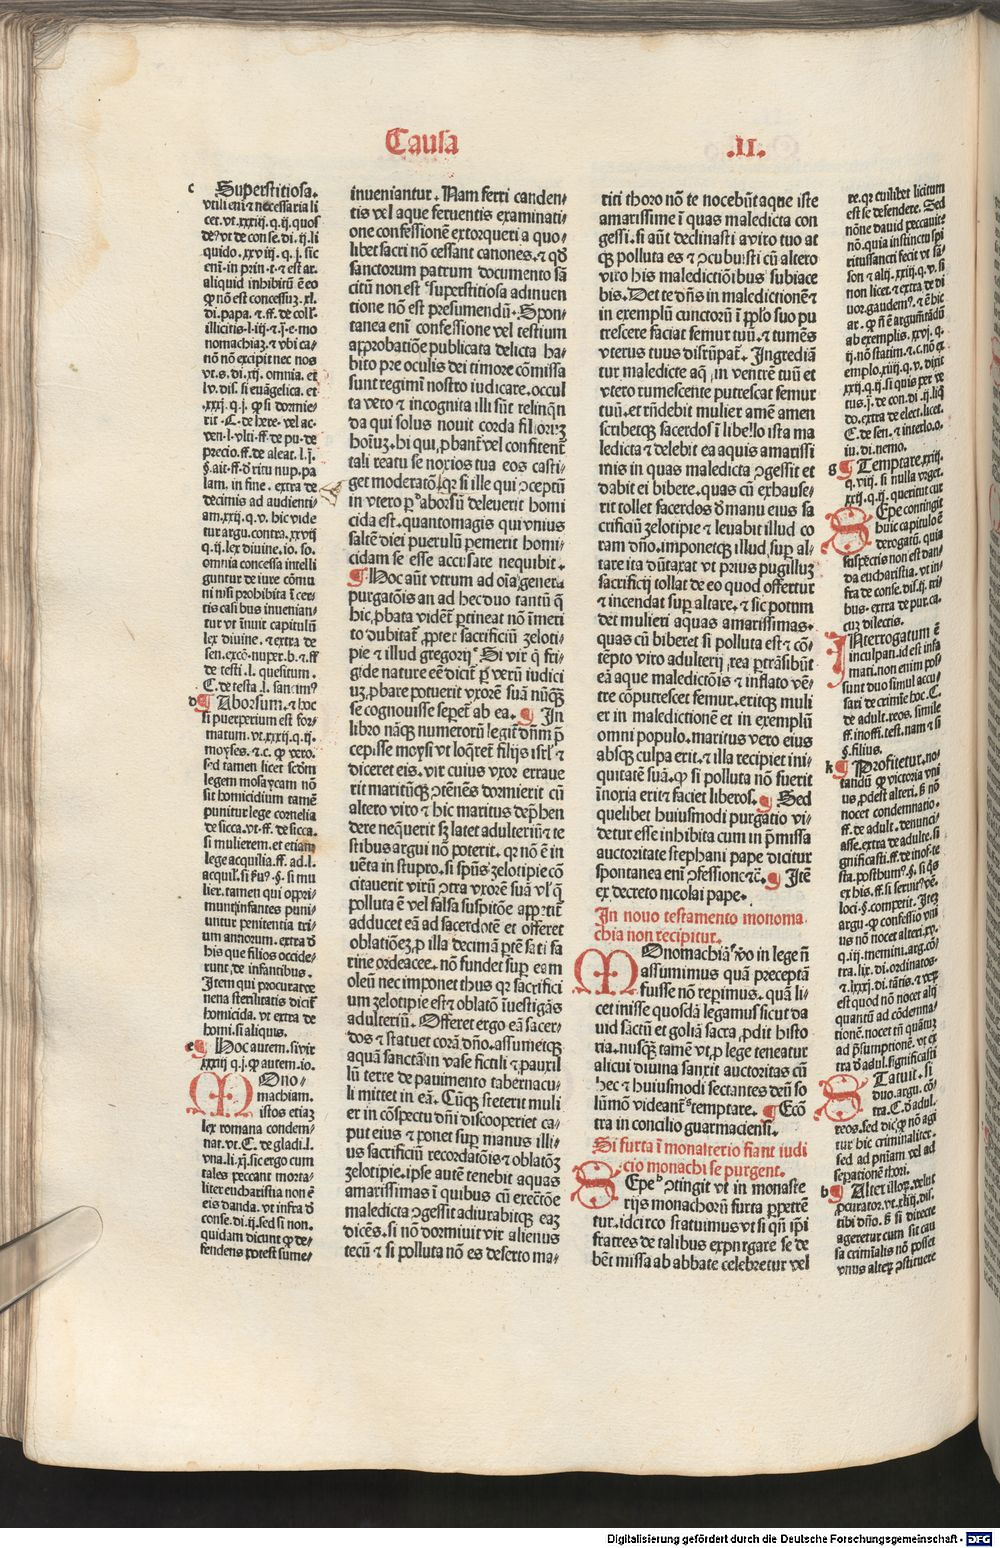 Causa
.II.
c Superstitiosa.
vtili enī ⁊ necessaria li
cet. vt. xxiij. q. ij. quos
quido. xxviij. q. j. sic
enī. in prin. t. ⁊ est ar.
aliquid inhibitū ē eo
di. papa. ⁊ ff. de coll̄.
illicitis. l. iij. ⁊ .j. e. mo
nomachiaꝫ. ⁊ vbi ca-
nō nō excipit nec nos
vt. s. di. xij. omnia. et
lv. dis. si euāgelica. et
.xxxj. q. j. ꝙ si dormie-
rit. C. de here. vel ac.
ven. l. vlti. ff. de pu. de
precio. ff. de aleat. l. j.
§. ait. ff. d̄ ritu nup. pa
lam. in fine. extra de
decimis ad audienti-
am. xxij. q. v. hic vide
tur argu. contra. xxvij
q. ij. lex diuine. io. so.
omnia concessa intelli
guntur de iure cōmu
ni nisi prohibita ī cer-
tis casibus inuenian-
tur vt innuit capitulū
lex diuine. ⁊ extra de
sen. excō. nuper. b. ⁊ ff
de testi. l. quesitum.
C. de testa. l. sancim⁹
d ¶ Aborsum. ⁊ hoc
si puerperium est for-
matum. vt. xxxij. q. ij.
moyses. ⁊ c. ꝙ vero.
sed tamen licet scōm
legem mosaycam nō
sit homicidium tamē
punitur lege cornelia
de sicca. vt. ff. de sicca.
si mulierem. et etiam
lege acquilia. ff. ad. l.
acquil. si §. si mu
lier. tamen qui oppri-
munt infantes puni-
untur penitentia tri-
um annorum. extra d̄
his que filios occide-
runt. de infantibus.
Item qui procurat ve
nena sterilitatis dicit̄
homicida. vt extra de
homi. si aliquis.
e ¶ Hoc autem. si vir
xxxiij q. j. ꝙ autem. io.
MOno-
machiam.
istos etiaꝫ
lex romana condem-
nat. vt. C. de gladi. l.
vna. li. xj. sic ergo cum
tales peccant morta-
liter eucharistia non ē
eis danda. vt infra d̄
conse. di. ij. sed si non.
quidam dicunt ꝙ de-
fendens potest sume-
inueniantur. Nam ferri canden-
tis vel aque feruentis examinati-
one confessionē extorqueri a quo-
libet sacri nō cessant canones. ⁊ qd̄
sanctorum patrum documento sā
citū non est ᶜsuperstitiosa adinuen
tione nō est presumendū. Spon-
tanea enī confessione vel testium
approbatiōe publicata delicta ha-
bito pre oculis dei timore cōmissa
sunt regimī nostro iudicare. occul
ta vero ⁊ incognita illi sūt relinqn̄
da qui solus nouit corda filiorꝫ
hoīuꝫ. hi qui ꝓbant̄ vel confitent̄
tali reatu se noxios tua eos casti-
get moderatō. qr si ille qui ɔceptū
in vtero ꝑ ᵈaborsū deleuerit homi
cida est. quantomagis qui vnius
saltē diei puerulū pemerit homi-
cidam se esse accusare nequibit.
¶ ᵉHoc aūt vtrum ad oīa genera
purgatōis an ad hec duo tantū q̄
hic ꝓbata vident̄ ꝑtineat nō īmeri
to dubitat̄ ꝓpter sacrificiū zeloti-
pie ⁊ illud gregorij ᶠSi vir q̄ fri-
gide nature eē dicit̄ ꝑ verū iudici
uꝫ ꝓbare potuerit vxorē suā nūqꝫ
se cognouisse sepet̄ ab ea. ¶ In
libro nāqꝫ numerorū legit̄ dn̄m p̄
cepisse moysi vt loq̄ret filijs isrl̄ ⁊
diceret eis. vir cuius vxor erraue
rit maritūqꝫ ɔtēnēs dormierit cū
altero viro ⁊ hic maritus dep̄hen
dere neq̄uerit sꝫ latet adulteriū ⁊ te
stibus argui nō poterit. qr nō ē in
uēta in stupro. si spūs zelotipie cō
citauerit virū ɔtra vxorē suā vl̓ q̄
polluta ē vel falsa suspitōe appetit̄
adducet eā ad sacerdotē et offeret
oblatiōeꝫ ꝓ illa decimā ꝑtē sati fa
rine ordeacee. nō fundet sup eam
oleū nec imponet thus qr sacrifici
um zelotipie est ⁊ oblatō īuestigās
adulteriū. Offeret ergo eā sacer-
dos ⁊ statuet corā dn̄o. assumetqꝫ
aquā sanctā in vase fictili ⁊ pauxil
lū terre de pauimento tabernacu-
li mittet in eā. Cūqꝫ steterit muli
er in cōspectu dn̄i discooperiet ca-
put eius ⁊ ponet sup manus illi-
us sacrificiū recordatōis ⁊ oblatōꝫ
zelotipie. ipse autē tenebit aquas
amarissimas ī quibus cū execr̄tōe
maledicta ɔgessit adiurabitqꝫ eaꝫ
dicēs. si nō dormiuit vir alienus
tecū ⁊ si polluta nō es deserto ma-
riti thoro nō te nocebūt aque iste
amarissime ī quas maledicta con
gessi. si aūt declinasti a viro tuo at
qꝫ polluta es ⁊ ɔcubuisti cū altero
viro his maledictiōibus subiace
bis. Det te dn̄s in maledictionē ⁊
in exemplū cunctorū ī ppl̓o suo pu
trescere faciat femur tuū. ⁊ tumēs
vterus tuus disrūpat̄. Ingrediā
tur maledicte aq̄ in ventrē tuū et
vtero tumescente putrescat femur
tuū. et rn̄debit mulier amē amen
scribetqꝫ sacerdos ī libello ista ma
ledicta ⁊ delebit ea aquis amarissi
mis in quas maledicta ɔgessit et
dabit ei bibere. quas cū exhause-
rit tollet sacerdos d̄ manu eius sa
crificiū zelotipie ⁊ leuabit illud co
ram dn̄o. imponetqꝫ illud sup al-
tare ita dūtaxat vt prius pugilluꝫ
sacrificij tollat de eo quod offertur
⁊ incendat sup altare. ⁊ sic potum
det mulieri aquas amarissimas.
quas cū biberet si polluta est ⁊ cō-
tēpto viro adulterij rea ꝑtrāsibūt
eā aque maledictiōis ⁊ inflato vē-
tre cōputrescet femur. eritqꝫ muli
er in maledictionē et in exemplū
omni populo. maritus vero eius
absqꝫ culpa erit. ⁊ illa recipiet ini-
quitatē suā. ꝙ si polluta nō fuerit
īnoxia erit ⁊ faciet liberos. ¶ Sed
quelibet huiusmodi purgatio vi-
detur esse inhibita cum in p̄missa
auctoritate stephani pape dicitur
spontanea enī ɔfessione ⁊c̄. ¶ Itē
ex decreto nicolai pape.
In nouo testamento monoma
chia non recipitur.
MOnomachiā ᶠvo in lege n̄
assumimus quā preceptā
fuisse nō reperimus. quā li-
cet inisse quosdā legamus sicut da
uid sāctū et goliā sacra ꝓdit histo
ria. nusqꝫ tamē vt ꝓ lege teneatur
alicui diuina sanxit auctoritas cū
hec ⁊ huiusmodi sectantes deū so
lūmō videant̄ ᵍtemptare. ¶ Ecō
tra in concilio guarmaciensi.
Si furta ī monasterio fiant iudi
cio monachi se purgent.
SEpe ʰ ɔtingit vt in monaste
rijs monachorū furta ꝑpetrē
tur. idcirco statuimus vt si qn̄ ip̄i
fratres de talibus expurgare se de
bēt missa ab abbate celebretur vel
re. qr cuilibet licitum
est se defendere. Sed
nōne dauid peccauit
nō. quia instinctu spī
ritussancti fecit vt sā-
son ⁊ alij. xxiij. q. v. si
non licet. ⁊ extra de di
uor. gaudem⁹. ⁊ ē hic
ar. ꝙ n̄ ē argum̄tādū
ab exemplis. xxvj. q.
ij. nō statim. ⁊ c. nō ex
emplo. xiiij. q. v. dixit
xxij. q. ij. si quis per ve
tus. j. de con. di. ij. liqꝫ
do. extra de elect. licet.
C. de sen. ⁊ interlo. o.
iu. di. nemo.
g ¶ Temptare. xxiij.
q. viij. si nulla vrget.
xxij. q. ij. queritur cur
SEpe contingit
huic capitulo ē
derogatū. quia
suspectis non est dan-
da eucharistia. vt in-
fra de conse. dis. ij. tri-
bus. extra de pur. ca.
cuꝫ dilectis.
INterrogatum ē
inculpari. id est infa
mati. non enim pos-
sunt duo simul accu-
sari de crimīe hoc. C.
de adult. reos. simile
ff. inoffi. test. nam ⁊ si
§. filius.
k ¶ Profitetur. no-
tandū ꝙ victoria vni
us ꝓdest alteri. s̄ nō
nocet condemnatio.
ff. de adult. denunci-
asse. extra de adulte. si
gnificasti. ff. de inof. te
sta. posthum⁹. §. si q̄s
ex his. ff. si seruit⁹ ve.
loci. §. competit. Iteꝫ
argu. ꝙ confessio vni
us nō nocet alteri. xv.
q. iij. memini. arg. cō-
tra. lix. di. ordinatos.
est quod nō nocet alij
quantū ad cōdemna-
tionē. nocet tn̄ quātuꝫ
ad p̄sumptionē. vt ex
tra d̄ adul. significasti
STatuit. si
duo. argu. cō-
tra. C. d̄ adul.
reos. sed dic ꝙ nō agi
tur hic criminaliter.
sed ad pn̄iam vel ad
seperationē thori.
b ¶ Alter illoꝝ. velut
ꝓcurator. vt. xliij. dis.
tibi dn̄o. s̄ si directe
ageretur cum sit cau
sa crimīalis nō posset
vnus alteꝝ ɔstituere
Digitalisierung gefördert durch die Deutsche Forschungsgemeinschaft - DFG